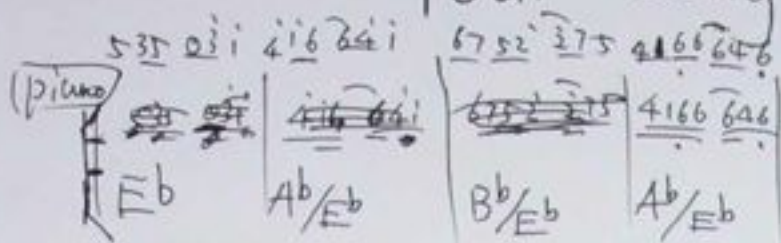 535 03i 4i6 64i 6752 275 4166 646
(piano) 4166 646
Eb Ab/Eb Bb/Eb Ab/Eb